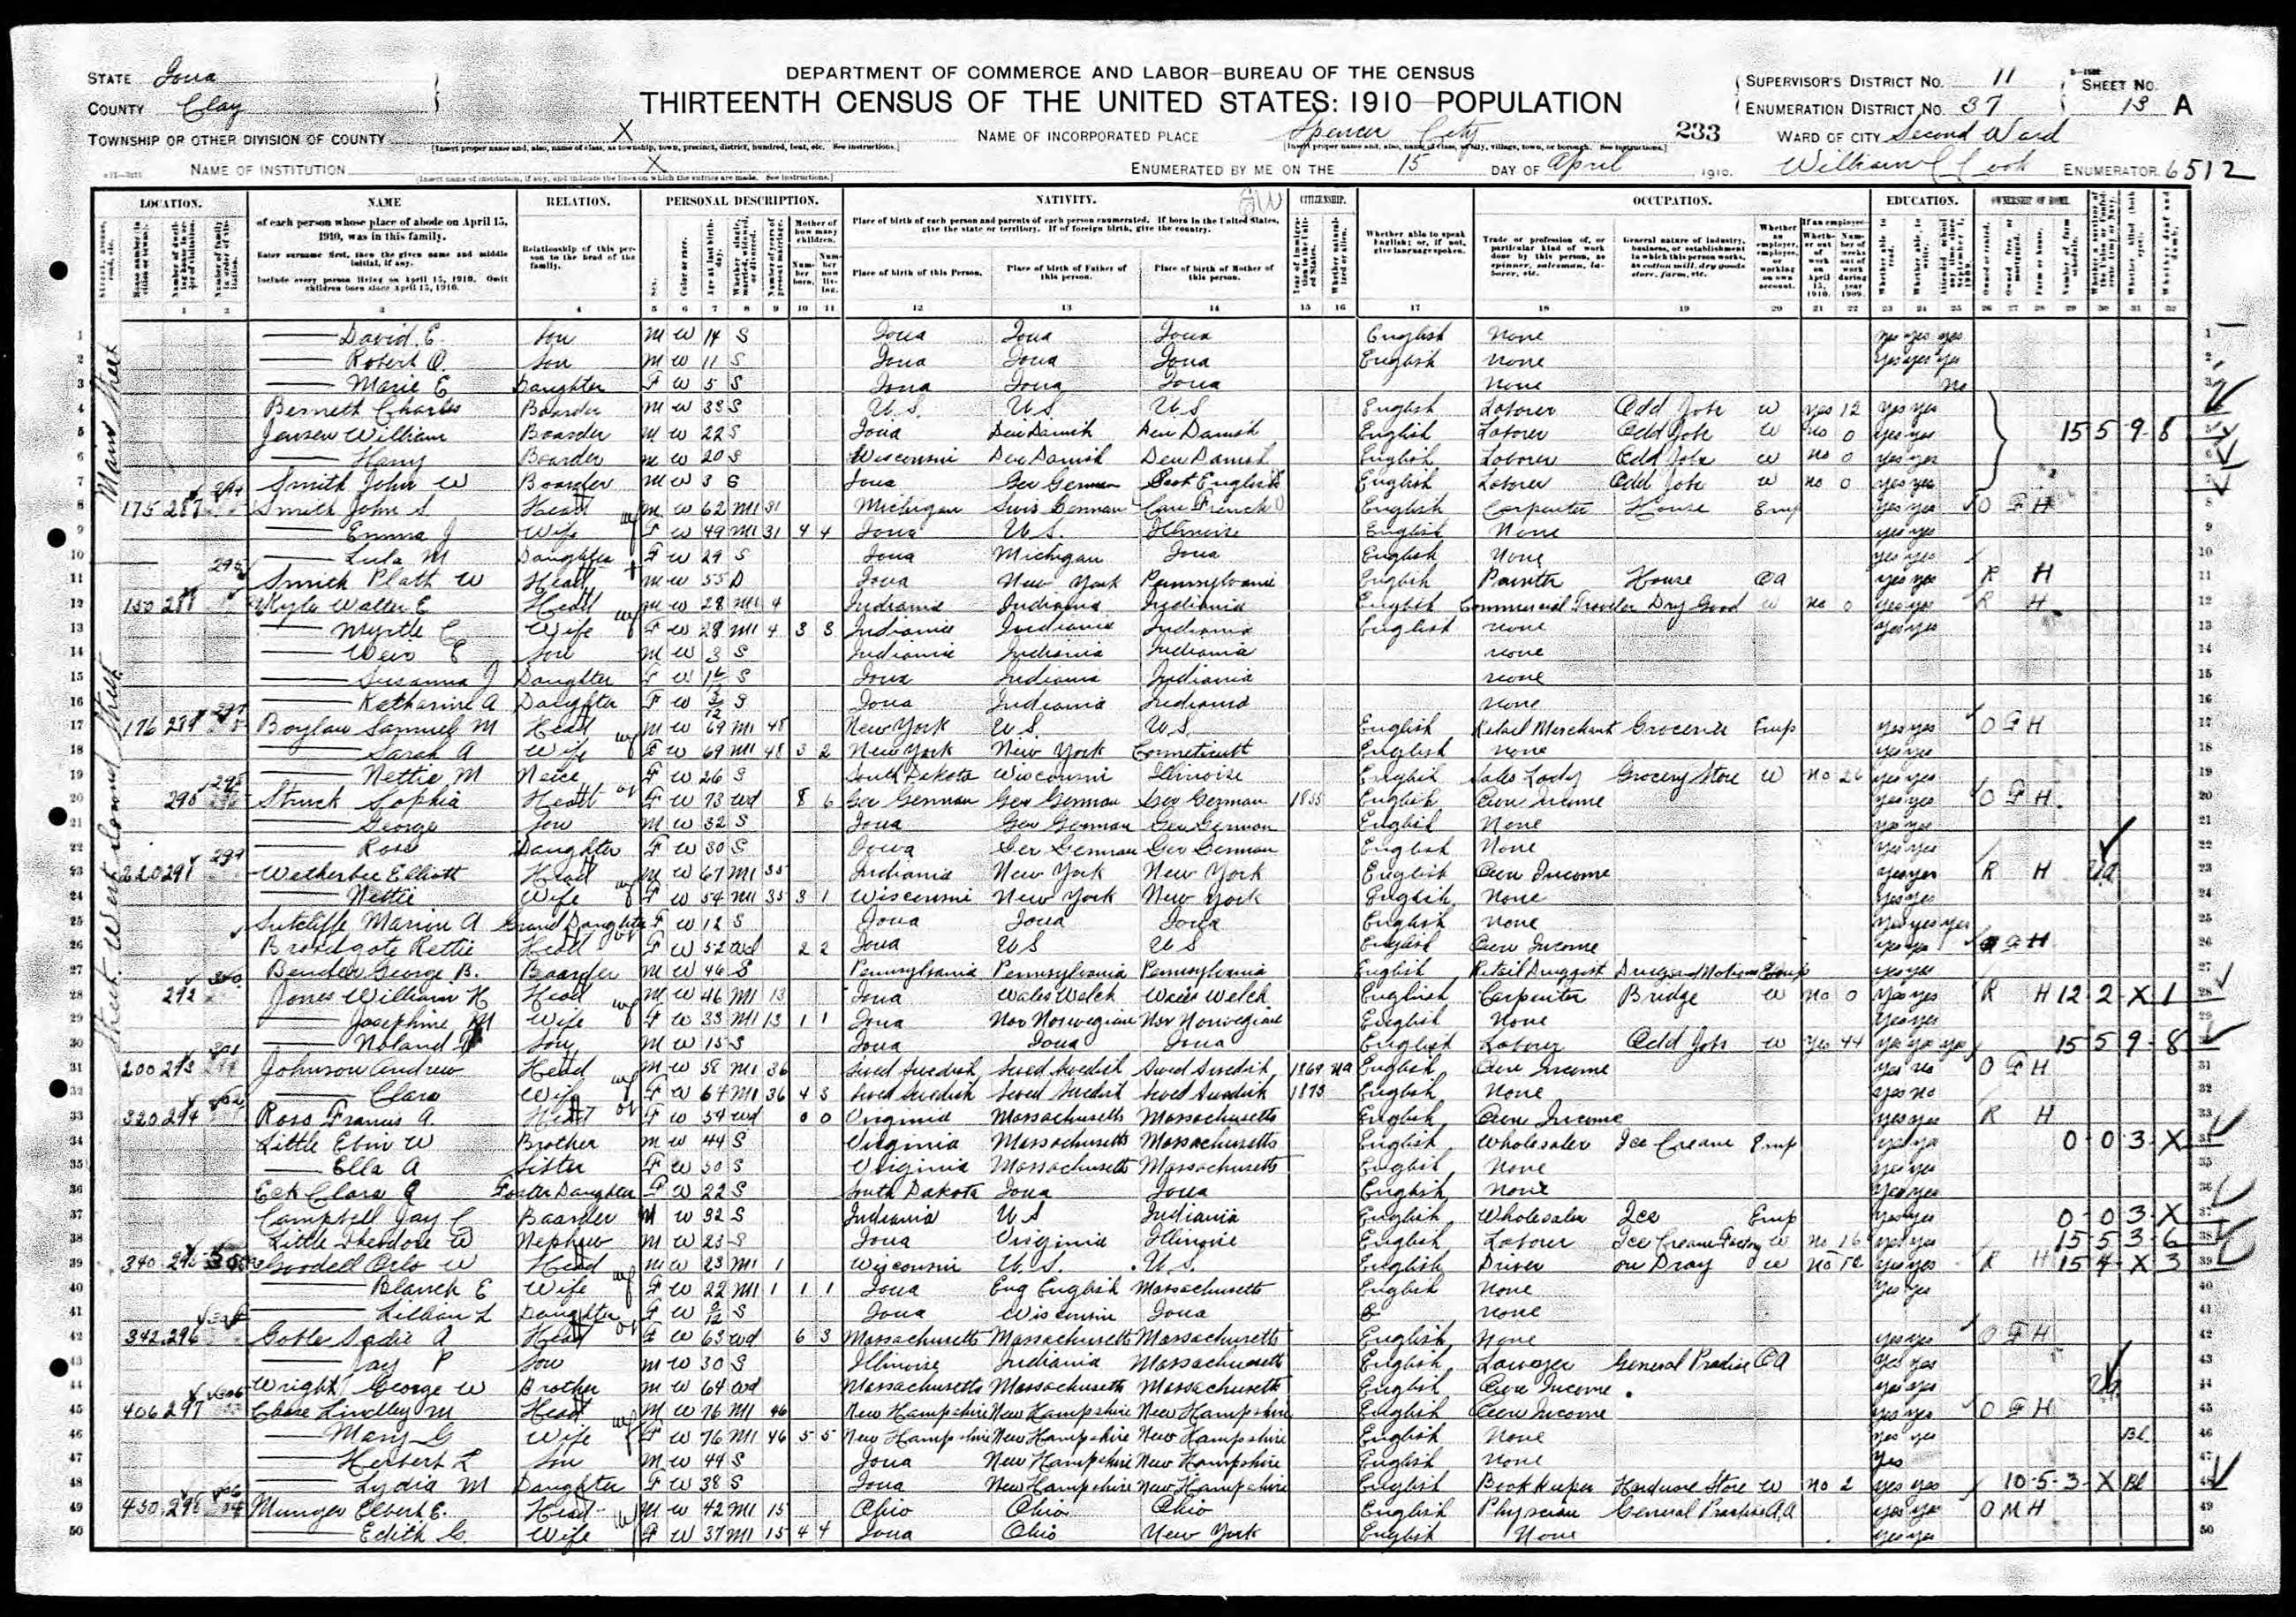 DEPARTMENT OF COMMERCE AND LABOR—BUREAU OF THE CENSUS
THIRTEENTH CENSUS OF THE UNITED STATES: 1910—POPULATION
STATE Iowa
COUNTY Clay
TOWNSHIP OR OTHER DIVISION OF COUNTY X
NAME OF INCORPORATED PLACE Spencer City
233
NAME OF INSTITUTION X
ENUMERATED BY ME ON THE 15 DAY OF April, 1910.
SUPERVISOR'S DISTRICT NO. 11
ENUMERATION DISTRICT NO. 37
SHEET NO. 13 A
WARD OF CITY Second Ward
William C Cook ENUMERATOR 6512
LOCATION. NAME RELATION. PERSONAL DESCRIPTION. NATIVITY. CITIZENSHIP. OCCUPATION. EDUCATION. OWNERSHIP OF HOME.
of each person whose place of abode on April 15, 1910, was in this family.
Enter surname first, then the given name and middle initial, if any.
Include every person living on April 15, 1910. Omit children born since April 15, 1910.
Relationship of this person to the head of the family.
Place of birth of each person and parents of each person enumerated. If born in the United States, give the state or territory. If of foreign birth, give the country.
Place of birth of this Person. Place of birth of Father of this person. Place of birth of Mother of this person.
Main Street
1 — David E. Son M W 14 S Iowa Iowa Iowa English None yes yes yes
2 — Robert O. Son M W 11 S Iowa Iowa Iowa English none yes yes yes
3 — Marie E Daughter F W 5 S Iowa Iowa Iowa None no
4 Charles Boarder M W 33 S U.S. U.S. U.S. English Laborer Odd Jobs W yes 12 yes yes
5 Jensen William Boarder M W 22 S Iowa Den Danish Den Danish English Laborer Odd Jobs W no 0 yes yes 15 5 9 8
6 — Harry Boarder M W 20 S Wisconsin Den Danish Den Danish English Laborer Odd Jobs W no 0 yes yes
7 Smith John W Boarder M W S Iowa Ger German Scot English English Laborer Odd Jobs W no 0 yes yes
8 175 287 Smith John S Head M W 62 M1 31 Michigan Swis German Can French English Carpenter House Emp yes yes O F H
9 — Emma J Wife F W 49 M1 31 4 4 Iowa U.S. Illinois English None yes yes
10 — Lula M Daughter F W 29 S Iowa Michigan Iowa English None yes yes
11 Smith Platt W Head M W 55 D Iowa New York Pennsylvania English Painter House OA yes yes R H
12 288 Walter E Head M W 28 M1 4 Indiania Indiania Indiania English Commercial Traveler Dry Good W no 0 yes yes R H
13 — Myrtle C Wife F W 28 M1 4 3 3 Indiania Indiania Indiania English none yes yes
14 — Weir E Son M W 3 S Indiania Indiania Indiania none
15 — Susanna J Daughter F W S Iowa Indiania Indiania none
16 — Katharine A Daughter F W S Iowa Indiania Indiania none
17 176 289 Boylan Samuel M Head M W 69 M1 48 New York U.S. U.S. English Retail Merchant Groceries Emp yes yes O F H
18 — Sarah A Wife F W 69 M1 48 3 2 New York New York Conneticutt English none yes yes
19 — Nettie M Neice F W 26 S South Dakota Wisconsin Illinoise English Sales Lady Grocery Store W no 26 yes yes
20 290 Struck Sophia Head F W 73 Wd 8 6 Ger German Ger German Ger German 1855 English Own Income yes yes O F H
21 — George Son M W 32 S Iowa Ger German Ger German English None yes yes
22 — Rose Daughter F W 30 S Iowa Ger German Ger German English None yes yes
23 220 291 Wetherbee Elliott Head M W 67 M1 35 Indiania New York New York English Own Income yes yes R H UA
24 — Nettie Wife F W 54 M1 35 3 1 Wisconsin New York New York English None yes yes
25 Sutcliffe Marion A Grand Daughter F W 12 S Iowa Iowa Iowa English none yes yes yes
26 Broadgate Rettie Head F W 52 Wd 2 2 Iowa U S U S English Own Income yes yes O F H
27 George B. Boarder M W 46 S Pennsylvania Pennsylvania Pennsylvania English Retail Druggist Drugs and Notions Emp yes yes
28 292 Jones William H Head M W 46 M1 13 Iowa Wales Welch Wales Welch English Carpenter Bridge W no 0 yes yes R H 12 2 X 1
29 — Josephine M Wife F W 33 M1 13 1 1 Iowa Nor Norwegian Nor Norwegian English None yes yes
30 — Noland Son M W 15 S Iowa Iowa Iowa English Laborer Odd Jobs W yes 44 yes yes yes 15 5 9 8
31 200 293 Johnson Andrew Head M W 58 M1 36 Swed Swedish Swed Swedish Swed Swedish 1869 Na English Own Income yes no O F H
32 — Clara Wife F W 64 M1 36 4 3 Swed Swedish Swed Swedish Swed Swedish 1873 English None yes no
33 320 294 Ross Francis A. Head F W 54 Wd 0 0 Virginia Massachusetts Massachusetts English Own Income yes yes R H
34 Little Eben W Brother M W 44 S Virginia Massachusetts Massachusetts English Wholesaler Ice Cream Emp yes yes 0 0 3 X
35 — Ella A Sister F W 50 S Virginia Massachusetts Massachusetts English None yes yes
36 Eck Clara Foster Daughter F W 22 S South Dakota Iowa Iowa English None yes yes
37 Campbell Jay C Boarder M W 32 S Indiania U S Indiania English Wholesaler Ice Emp yes yes 0 0 3 X
38 Little Theodore W Nephew M W 23 S Iowa Virginia Illinoie English Laborer Ice Cream Factory W no 16 yes yes 15 5 3 6
39 340 295 Goodell Orlo W Head M W 23 M1 1 Wisconsin U.S. U.S. English Driver on Dray W no yes yes R H 15 4 X 3
40 — Blanch E Wife F W 22 M1 1 1 1 Iowa Eng English Massachusetts English None yes yes
41 — Lillian L Daughter F W S Iowa Wisconsin Iowa none
42 342 296 Goble Sadie A Head F W 63 Wd 6 3 Massachusetts Massachusetts Massachusetts English None yes yes O F H
43 — Jay P Son M W 30 S Illinoise Indiania Massachusetts English Lawyer General Practice OA yes yes
44 Wright George W Brother M W 64 Wd Massachusetts Massachusetts Massachusetts English Own Income yes yes UA
45 406 297 Chase Lindley M Head M W 76 M1 46 New Hampshire New Hampshire New Hampshire English Own Income yes yes O F H
46 — Mary G Wife F W 76 M1 46 5 5 New Hampshire New Hampshire New Hampshire English None yes yes Bl
47 — Herbert L Son M W 44 S Iowa New Hampshire New Hampshire English None yes
48 — Lydia M Daughter F W 38 S Iowa New Hampshire New Hampshire English Book keeper Hardware Store W no 2 yes yes 10-5-3-X Bl
49 430 298 Munger Elbert E. Head M W 42 M1 15 Ohio Ohio Ohio English Physician General Practice yes yes O M H
50 — Edith G. Wife F W 37 M1 15 4 4 Iowa Ohio New York English None yes yes